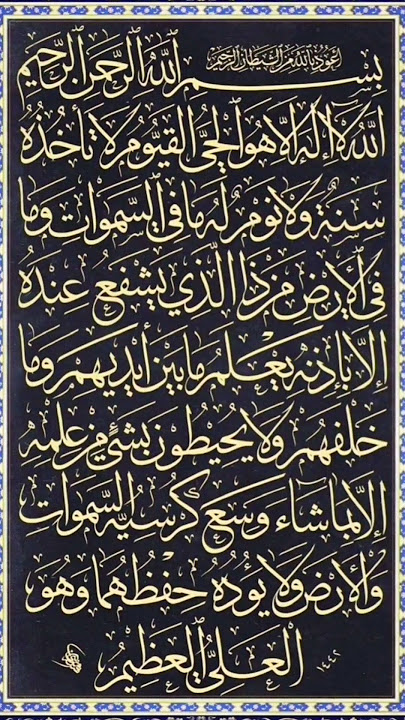 اعوذ بالله من الشيطان الرجيم
بِسْمِ اللّٰهِ الرَّحْمٰنِ الرَّحِيمِ
اَللّٰهُ لَا اِلٰهَ اِلَّا هُوَ الْحَيُّ الْقَيُّومُ لَا تَأْخُذُهُ
سِنَةٌ وَلَا نَوْمٌ لَهُ مَا فِي السَّمٰوَاتِ وَمَا
فِي الْاَرْضِ مَنْ ذَا الَّذِي يَشْفَعُ عِنْدَهُ
اِلَّا بِاِذْنِهِ يَعْلَمُ مَا بَيْنَ أَيْدِيهِمْ وَمَا
خَلْفَهُمْ وَلَا يُحِيطُونَ بِشَيْءٍ مِنْ عِلْمِهِ
اِلَّا بِمَا شَاءَ وَسِعَ كُرْسِيُّهُ السَّمٰوَاتِ
وَالْاَرْضَ وَلَا يَؤُدُهُ حِفْظُهُمَا وَهُوَ
الْعَلِيُّ الْعَظِيمُ
١٤٤٢